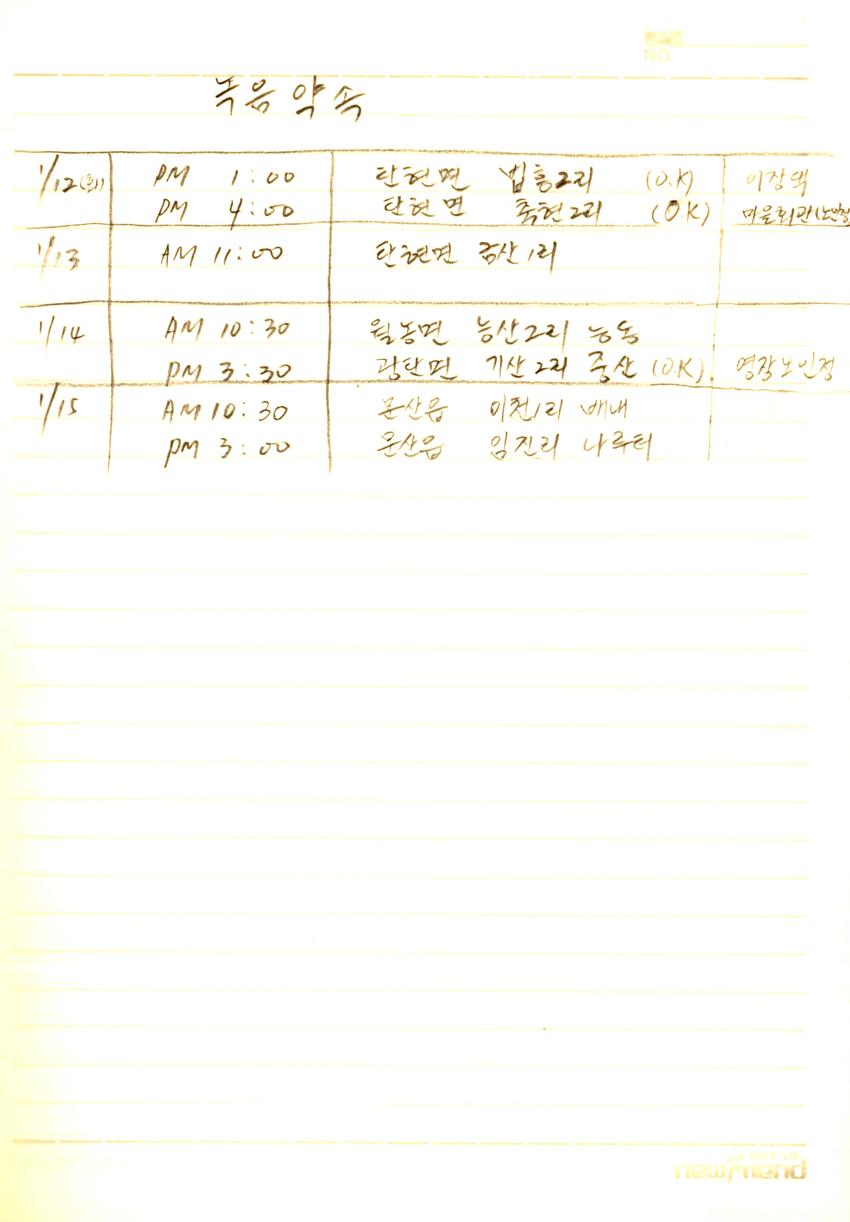 NO.
녹음 약속
1/12(화) PM 1:00 탄현면 법흥2리 (O.K) 이장댁
PM 4:00 탄현면 축현2리 (OK) 마을회관(노인정
1/13 AM 11:00 탄현면 금산1리
1/14 AM 10:30 월롱면 능산2리 능동
PM 3:30 광탄면 기산2리 중산 (O.K). 영장노인정
1/15 AM 10:30 문산읍 이천1리 배내
PM 3:00 문산읍 임진리 나루터
newfriend